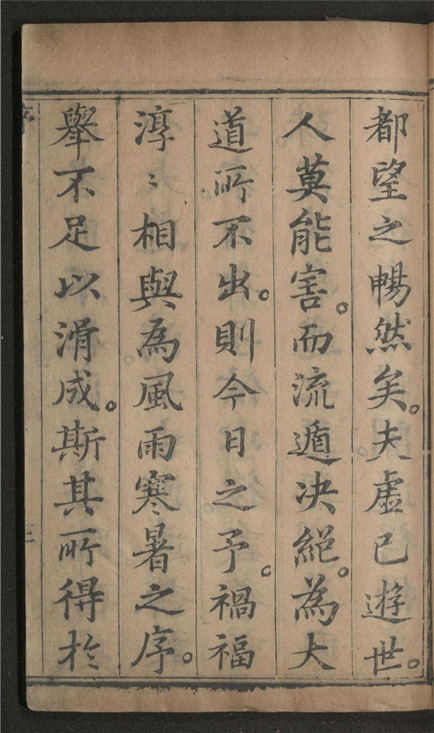 都望之暢然矣。夫虛己遊世。
人莫能害。而流遁决絕。為大
道所不出。則今日之予。禍福
淳〻相與為風雨寒暑之序。
舉不足以滑成。斯其所得於
序